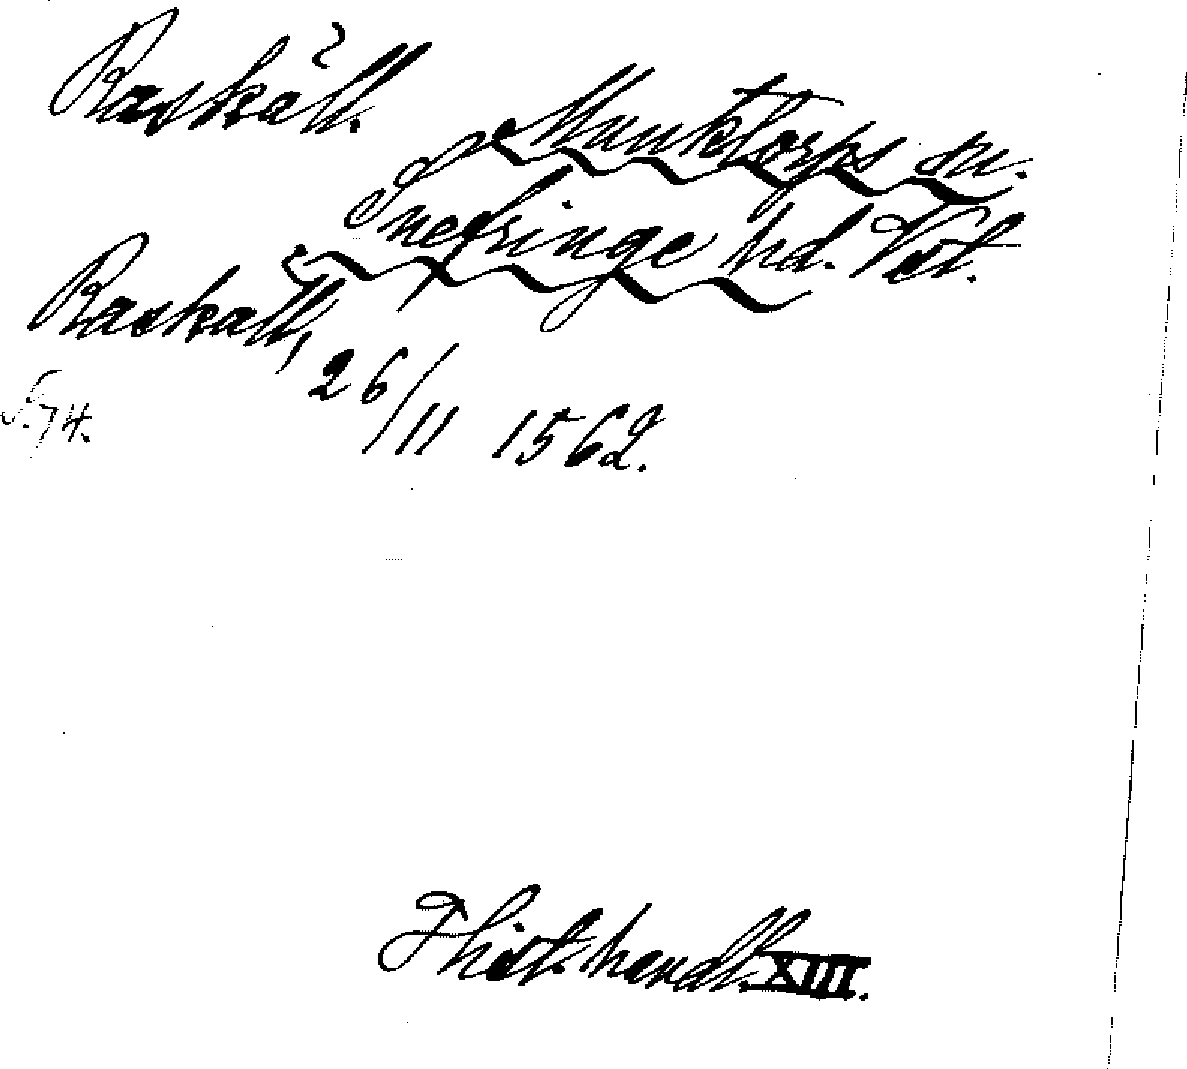 Raskäll.
Munktorps sn.
Snefringe hd. Vst.
Raskall,
26/11 1562.
S. 74.
F hist. handl. XIII.